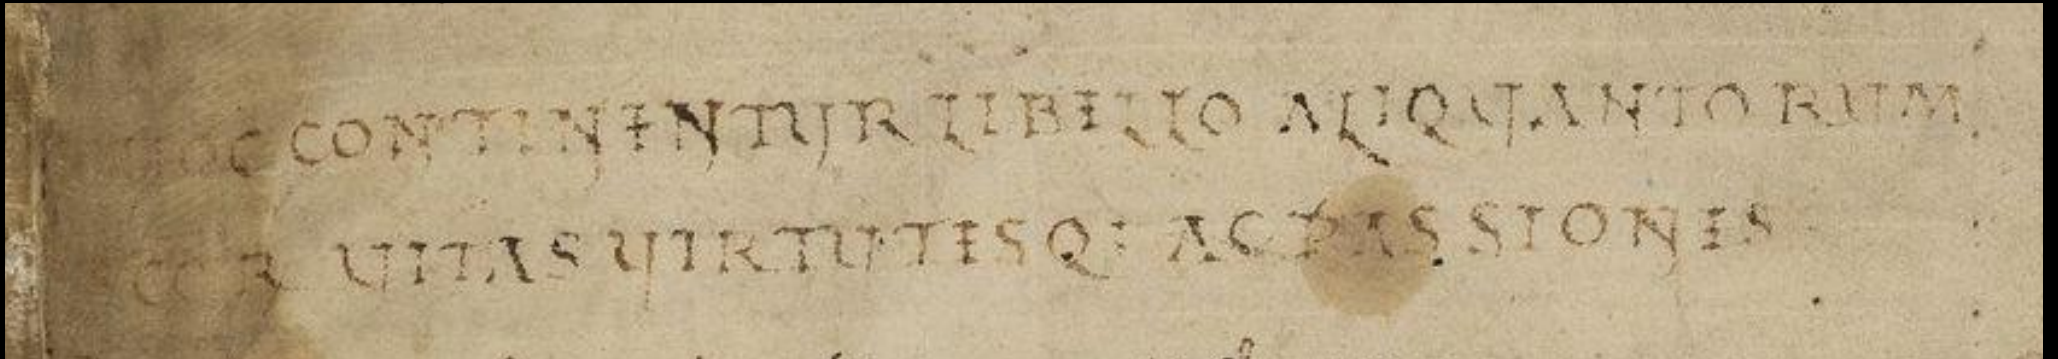 HOC CONTINENTUR LIBELLO ALIQUANTORUM
SCOR UITAS UIRTUTESQ: AC PASSIONES